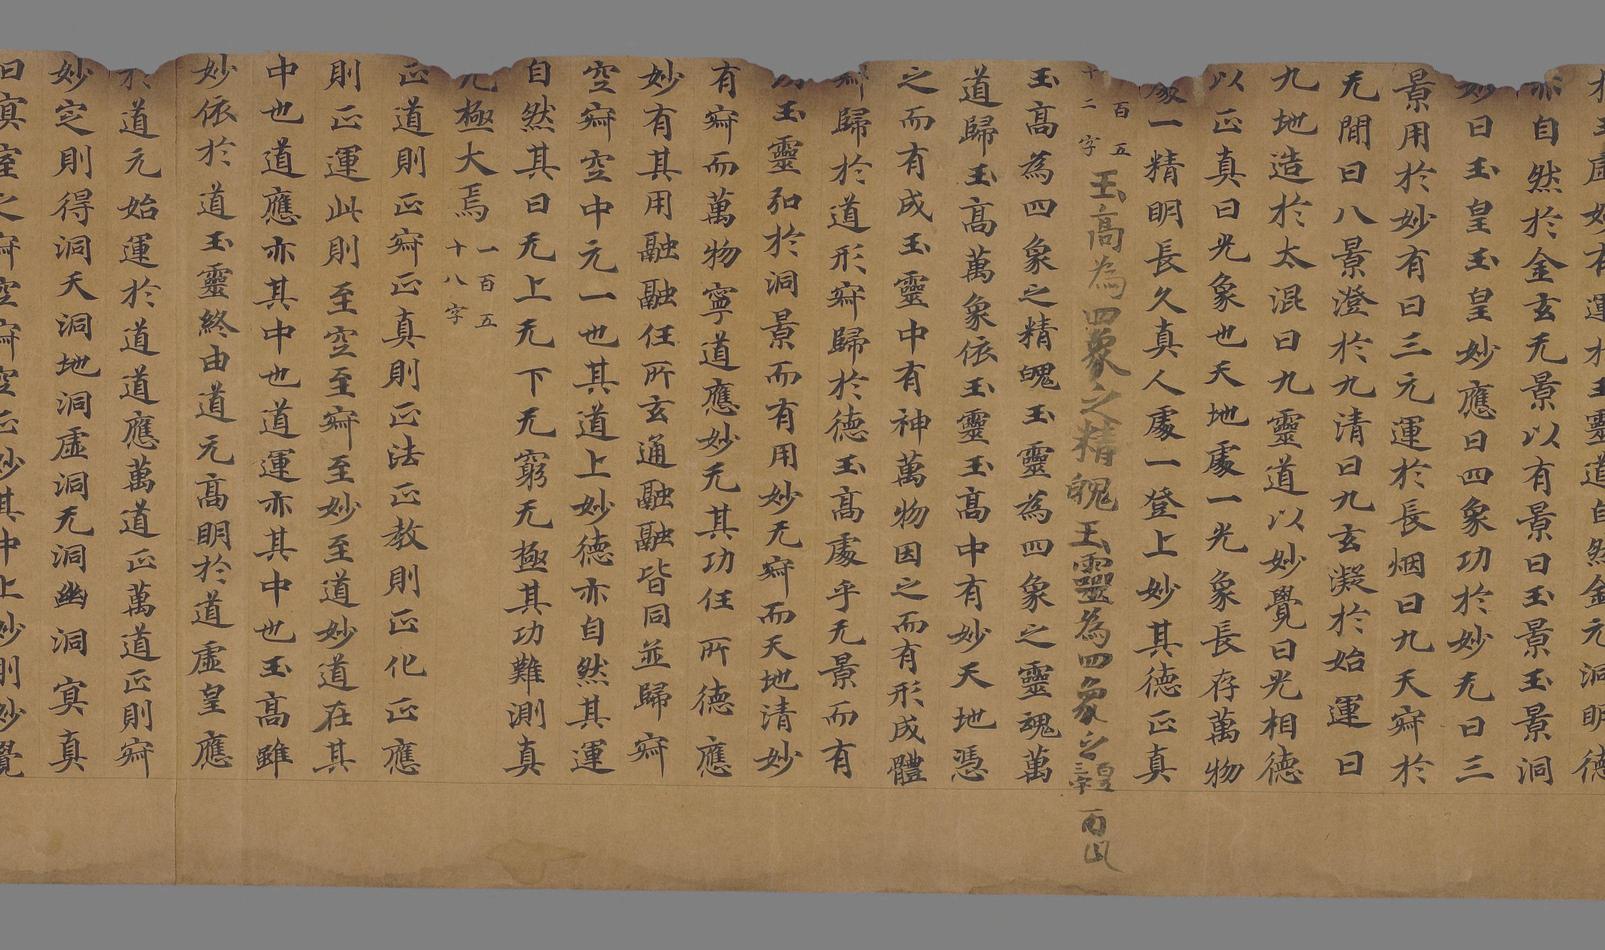 於玉虛妙有運於玉靈道自然金元洞明德
亦自然於金玄无景以有景曰玉景玉景洞
妙曰玉皇玉皇妙應曰四象功於妙无曰三
景用於妙有曰三元運於長烟曰九天寂於
无間曰八景澄於九清曰九玄凝於始運曰
九地造於太混曰九靈道以妙覺曰光相德
以正真曰光象也天地處一光象長存萬物
處一精明長久真人處一登上妙其德正真
百五十二字 玉高為四象之精魄玉靈為四象之
玉高為四象之精魄玉靈為四象之靈魂萬
道歸玉高萬象依玉靈玉高中有妙天地憑
之而有成玉靈中有神萬物因之而有形成體
歸於道形寂歸於德玉高處乎无景而有
玉靈弘於洞景而有用妙无寂而天地清妙
有寂而萬物寧道應妙无其功任所德應
妙有其用融融任所玄通融融皆同並歸寂
空寂空中元一也其道上妙德亦自然其運
自然其曰无上无下无窮无極其功難測真
元極大焉 一百五十八字
正道則正寂正真則正法正教則正化正應
則正運此則至空至寂至妙至道妙道在其
中也道應亦其中也道運亦其中也玉高雖
妙依於道玉靈終由道元高明於道虛皇應
於道元始運於道道應萬道正萬道正則寂
妙空則得洞天洞地洞虛洞无洞幽洞寞真
曰寞窒之寂空寂空正妙其中上妙則妙覺